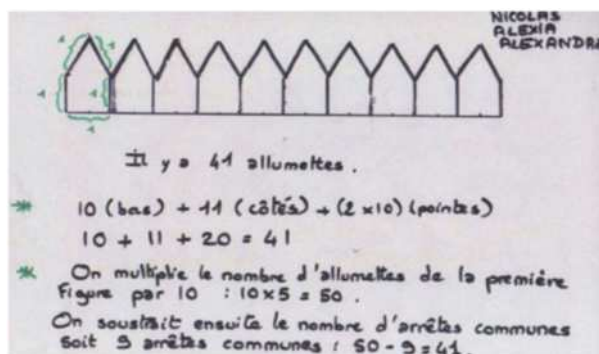 NICOLAS
ALEXIA
ALEXANDRA
1 1
1 1
1
Il y a 41 allumettes.
* 10 (bas) + 11 (côtés) + (2 x 10) (pointes)
10 + 11 + 20 = 41
* On multiplie le nombre d'allumettes de la première
Figure par 10 : 10 x 5 = 50.
On soustrait ensuite le nombre d'arrêtes communes
soit 9 arrêtes communes : 50 - 9 = 41.